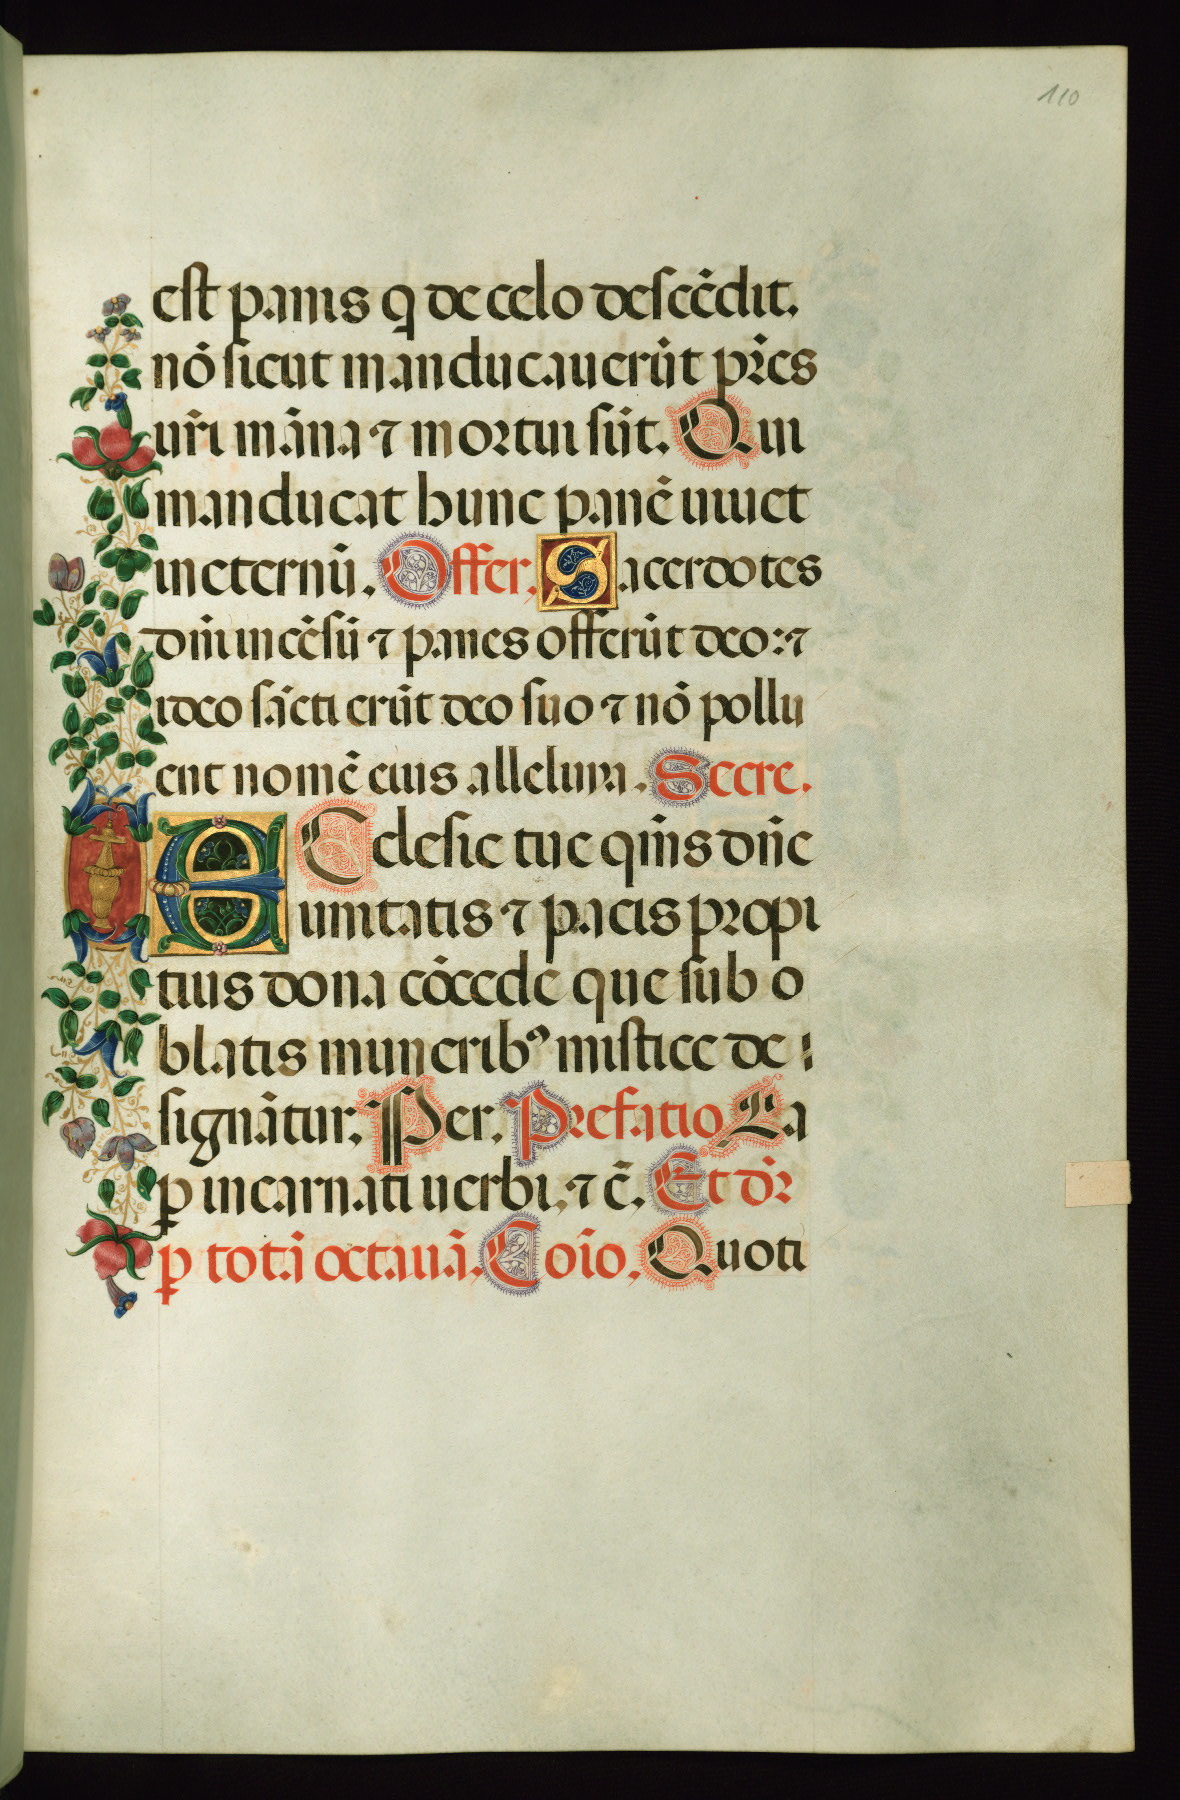 110
est panis q̄ de celo descēdit.
nō sicut manducauerūt pr̄es
ur̄i māna ⁊ mortui sūt. Qui
manducat hunc panē uiuet
in eternū. Offer. Sacerdotes
dn̄i incēsū ⁊ panes offerūt deo: ⁊
ideo sācti erūt deo suo ⁊ nō pollu
ent nomē eius alleluya. Secre.
ECclesie tue qm̄s dn̄e
unitatis ⁊ pacis propi
tius dona cōcede que sub o
blatis munerib⁹ mistice de :
signātur. Per. Prefatio Ea
ꝑ incarnati uerbi. ⁊ c̄. Et dr̄
ꝑ totā octauā. Coīo. Quoti